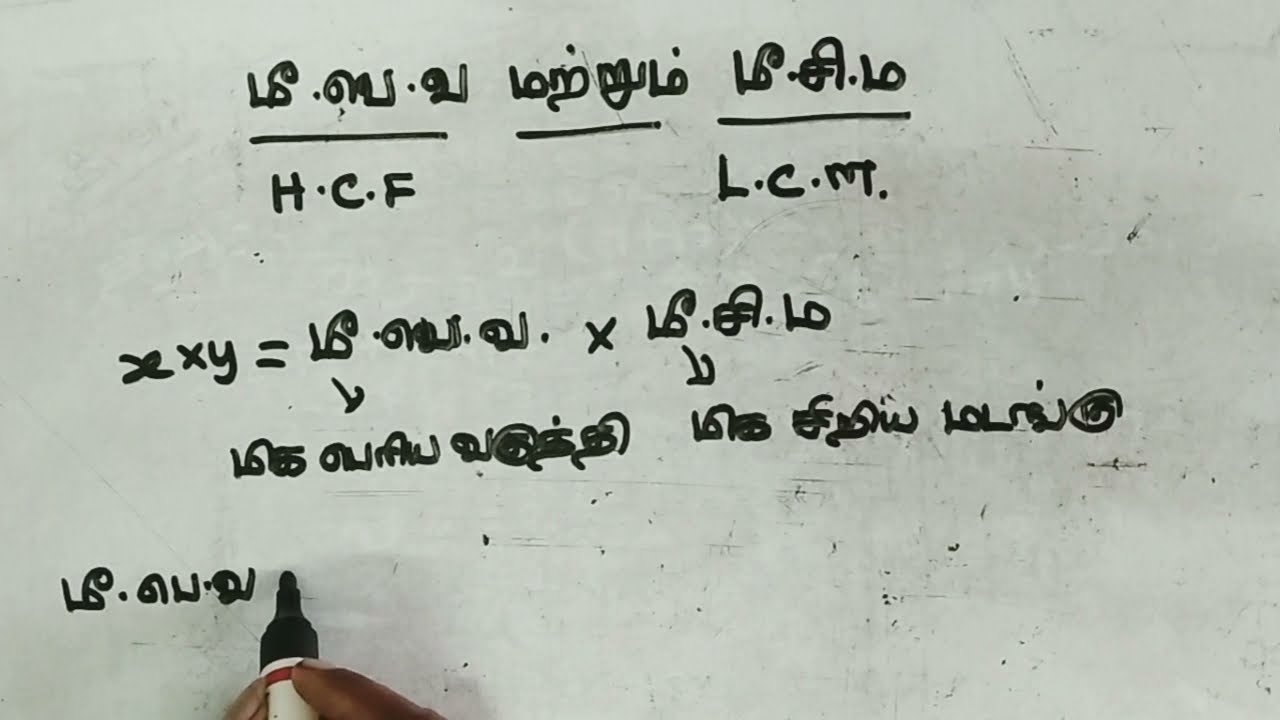 மீ.பெ.வ மற்றும் மீ.சி.ம
H.C.F L.C.M.
x×y = மீ.பெ.வ. × மீ.சி.ம
மிக பெரிய வகுத்தி மிக சிறிய மடங்கு
மீ.பெ.வ